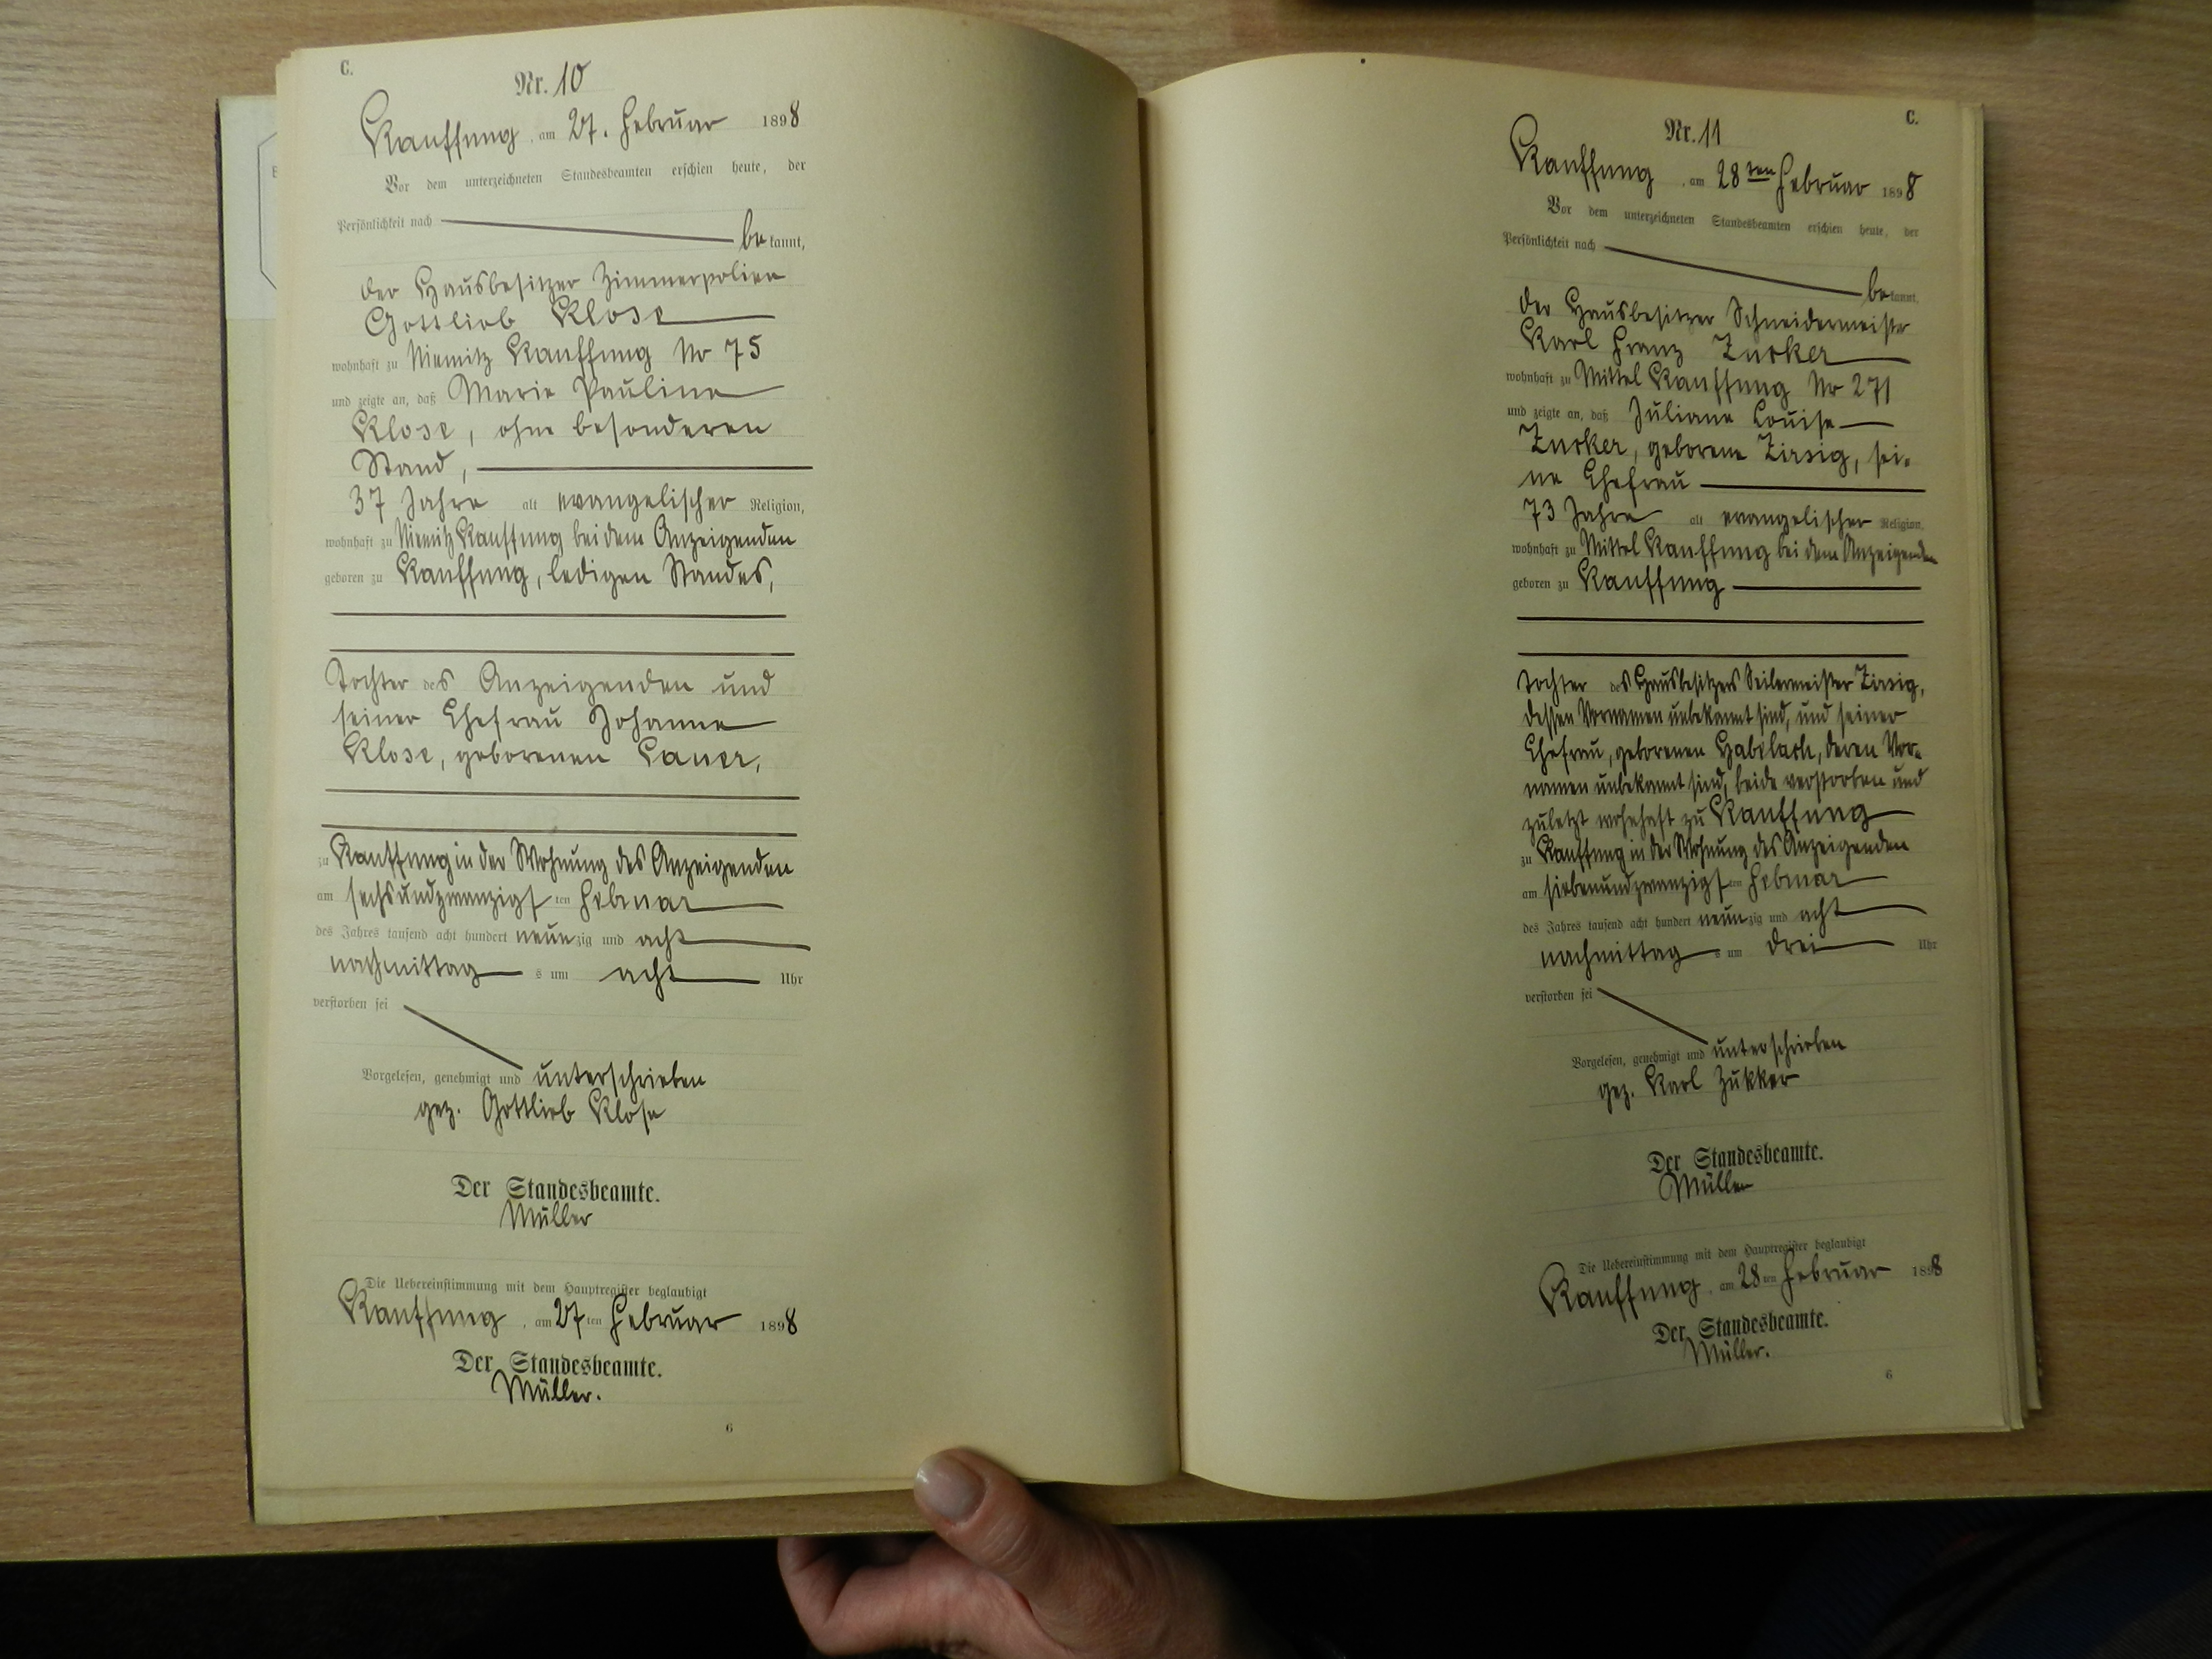 C.
Nr. 10
Kauffung, am 27. Februar 1898
Vor dem unterzeichneten Standesbeamten erschien heute, der
Persönlichkeit nach
bekannt,
der Hausbesitzer Zimmerpolier
Gottlieb Klose
wohnhaft zu Niemitz Kauffung No 75
und zeigte an, daß Marie Pauline
Klose, ohne besonderen
Stand,
37 Jahre alt evangelischer Religion,
wohnhaft zu Niemitz Kauffung bei dem Anzeigenden
geboren zu Kauffung, ledigen Standes,
Tochter des Anzeigenden und
seiner Ehefrau Johanne
Klose, geborenen Lauer,
zu Kauffung in der Wohnung des Anzeigenden
am sechsundzwanzigsten Februar
des Jahres tausend acht hundert neunzig und acht
nachmittags um acht Uhr
verstorben sei
Vorgelesen, genehmigt und unterschrieben
gez. Gottlieb Klose
Der Standesbeamte.
Müller
Die Uebereinstimmung mit dem Hauptregister beglaubigt
Kauffung, am 27ten Februar 1898
Der Standesbeamte.
Müller.
6
C.
Nr. 11
Kauffung, am 28ten Februar 1898
Vor dem unterzeichneten Standesbeamten erschien heute, der
Persönlichkeit nach
bekannt,
der Hausbesitzer Schneidermeister
Karl Franz Zukker
wohnhaft zu Mittel Kauffung No 271
und zeigte an, daß Juliane Louise
Zukker, geborene Zirsig, sei-
ne Ehefrau
73 Jahre alt evangelischer Religion,
wohnhaft zu Mittel Kauffung bei dem Anzeigenden
geboren zu Kauffung
Tochter des Hausbesitzers Seilermeister Zirsig,
dessen Vornamen unbekannt sind, und seiner
Ehefrau, geborenen Habilach, deren Vor-
namen unbekannt sind, beide verstorben und
zuletzt wohnhaft zu Kauffung
zu Kauffung in der Wohnung des Anzeigenden
am siebenundzwanzigsten Februar
des Jahres tausend acht hundert neunzig und acht
nachmittags um drei Uhr
verstorben sei
Vorgelesen, genehmigt und unterschrieben
gez. Karl Zukker
Der Standesbeamte.
Müller
Die Uebereinstimmung mit dem Hauptregister beglaubigt
Kauffung, am 28ten Februar 1898
Der Standesbeamte.
Müller.
6